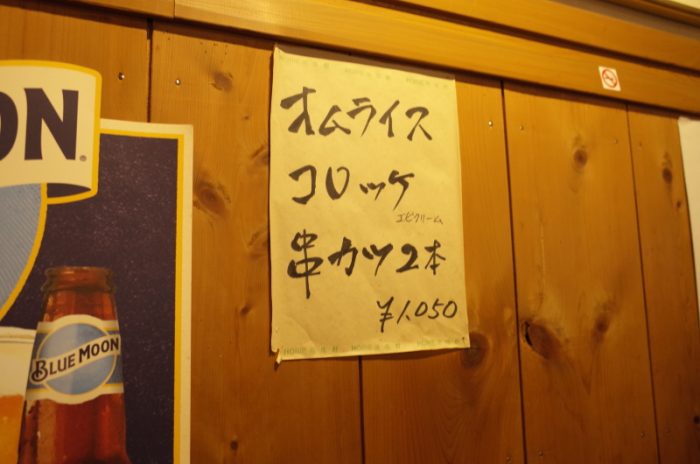 オムライス
コロッケ
エビクリーム
串カツ2本
¥1,050
OON
BLUE MOON